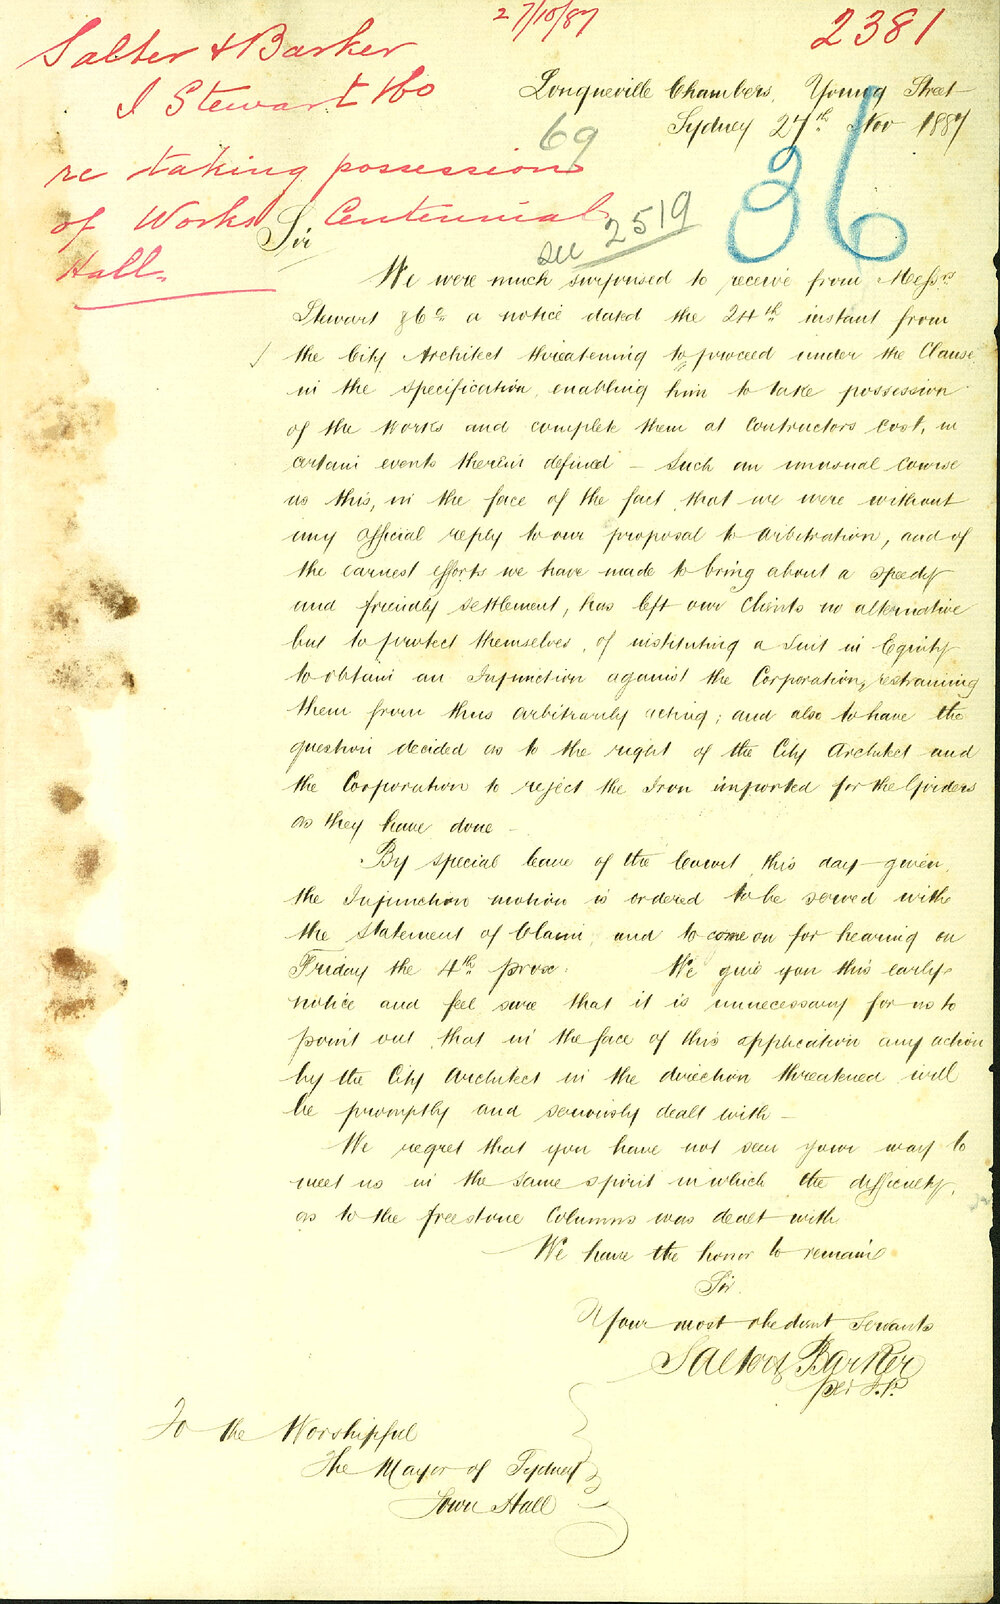 27/10/87
2381
Salter & Barker
J Stewart & Co
re taking possession
of Works Centennial
Hall
Longueville Chambers, Young Street
Sydney 27th Nov 1887
69
36
see 2519
Sir
We were much surprised to receive from Messrs
Stewart & Co a notice dated the 24th instant from
the City Architect threatening to proceed under the Clause
in the specification, enabling him to take possession
of the Works and complete them at Contractors Cost, in
certain events therein defined – Such an unusual course
as this, in the face of the fact, that we were without
any official reply to our proposal to arbitration, and of
the earnest efforts we have made to bring about a speedy
and friendly settlement, has left our Clients no alternative
but to protect themselves, of instituting a Suit in Equity
to obtain an Injunction against the Corporation, restraining
them from thus arbitrarily acting; and also to have the
question decided as to the right of the City Architect and
the Corporation to reject the Iron imported for the Girders
as they have done –
By special leave of the Court this day given,
the Injunction motion is ordered to be served with
the Statement of Claim, and to come on for hearing on
Friday the 4th prox: We give you this early
notice and feel sure that it is unnecessary for us to
point out, that in the face of this application any action
by the City Architect in the direction threatened will
be promptly and seriously dealt with –
We regret that you have not seen your way to
meet us in the same spirit in which the difficulty,
as to the freestone Columns was dealt with
We have the honor to remain
Sir
Your most obedient Servants
Salter & Barker
per
To the Worshipful
The Mayor of Sydney
Town Hall